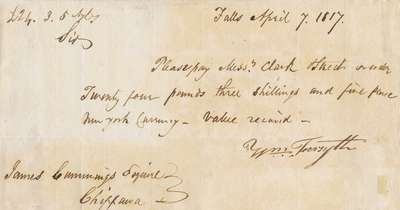 £24. 3. 5 NYC
Falls April 7. 1817.
Sir
Please pay Messrs. Clark & Street or order
Twenty four pounds three shillings and five pence
New york Currency – Value received –
Wm. Forsyth
James Cummings Esquire
Chippawa